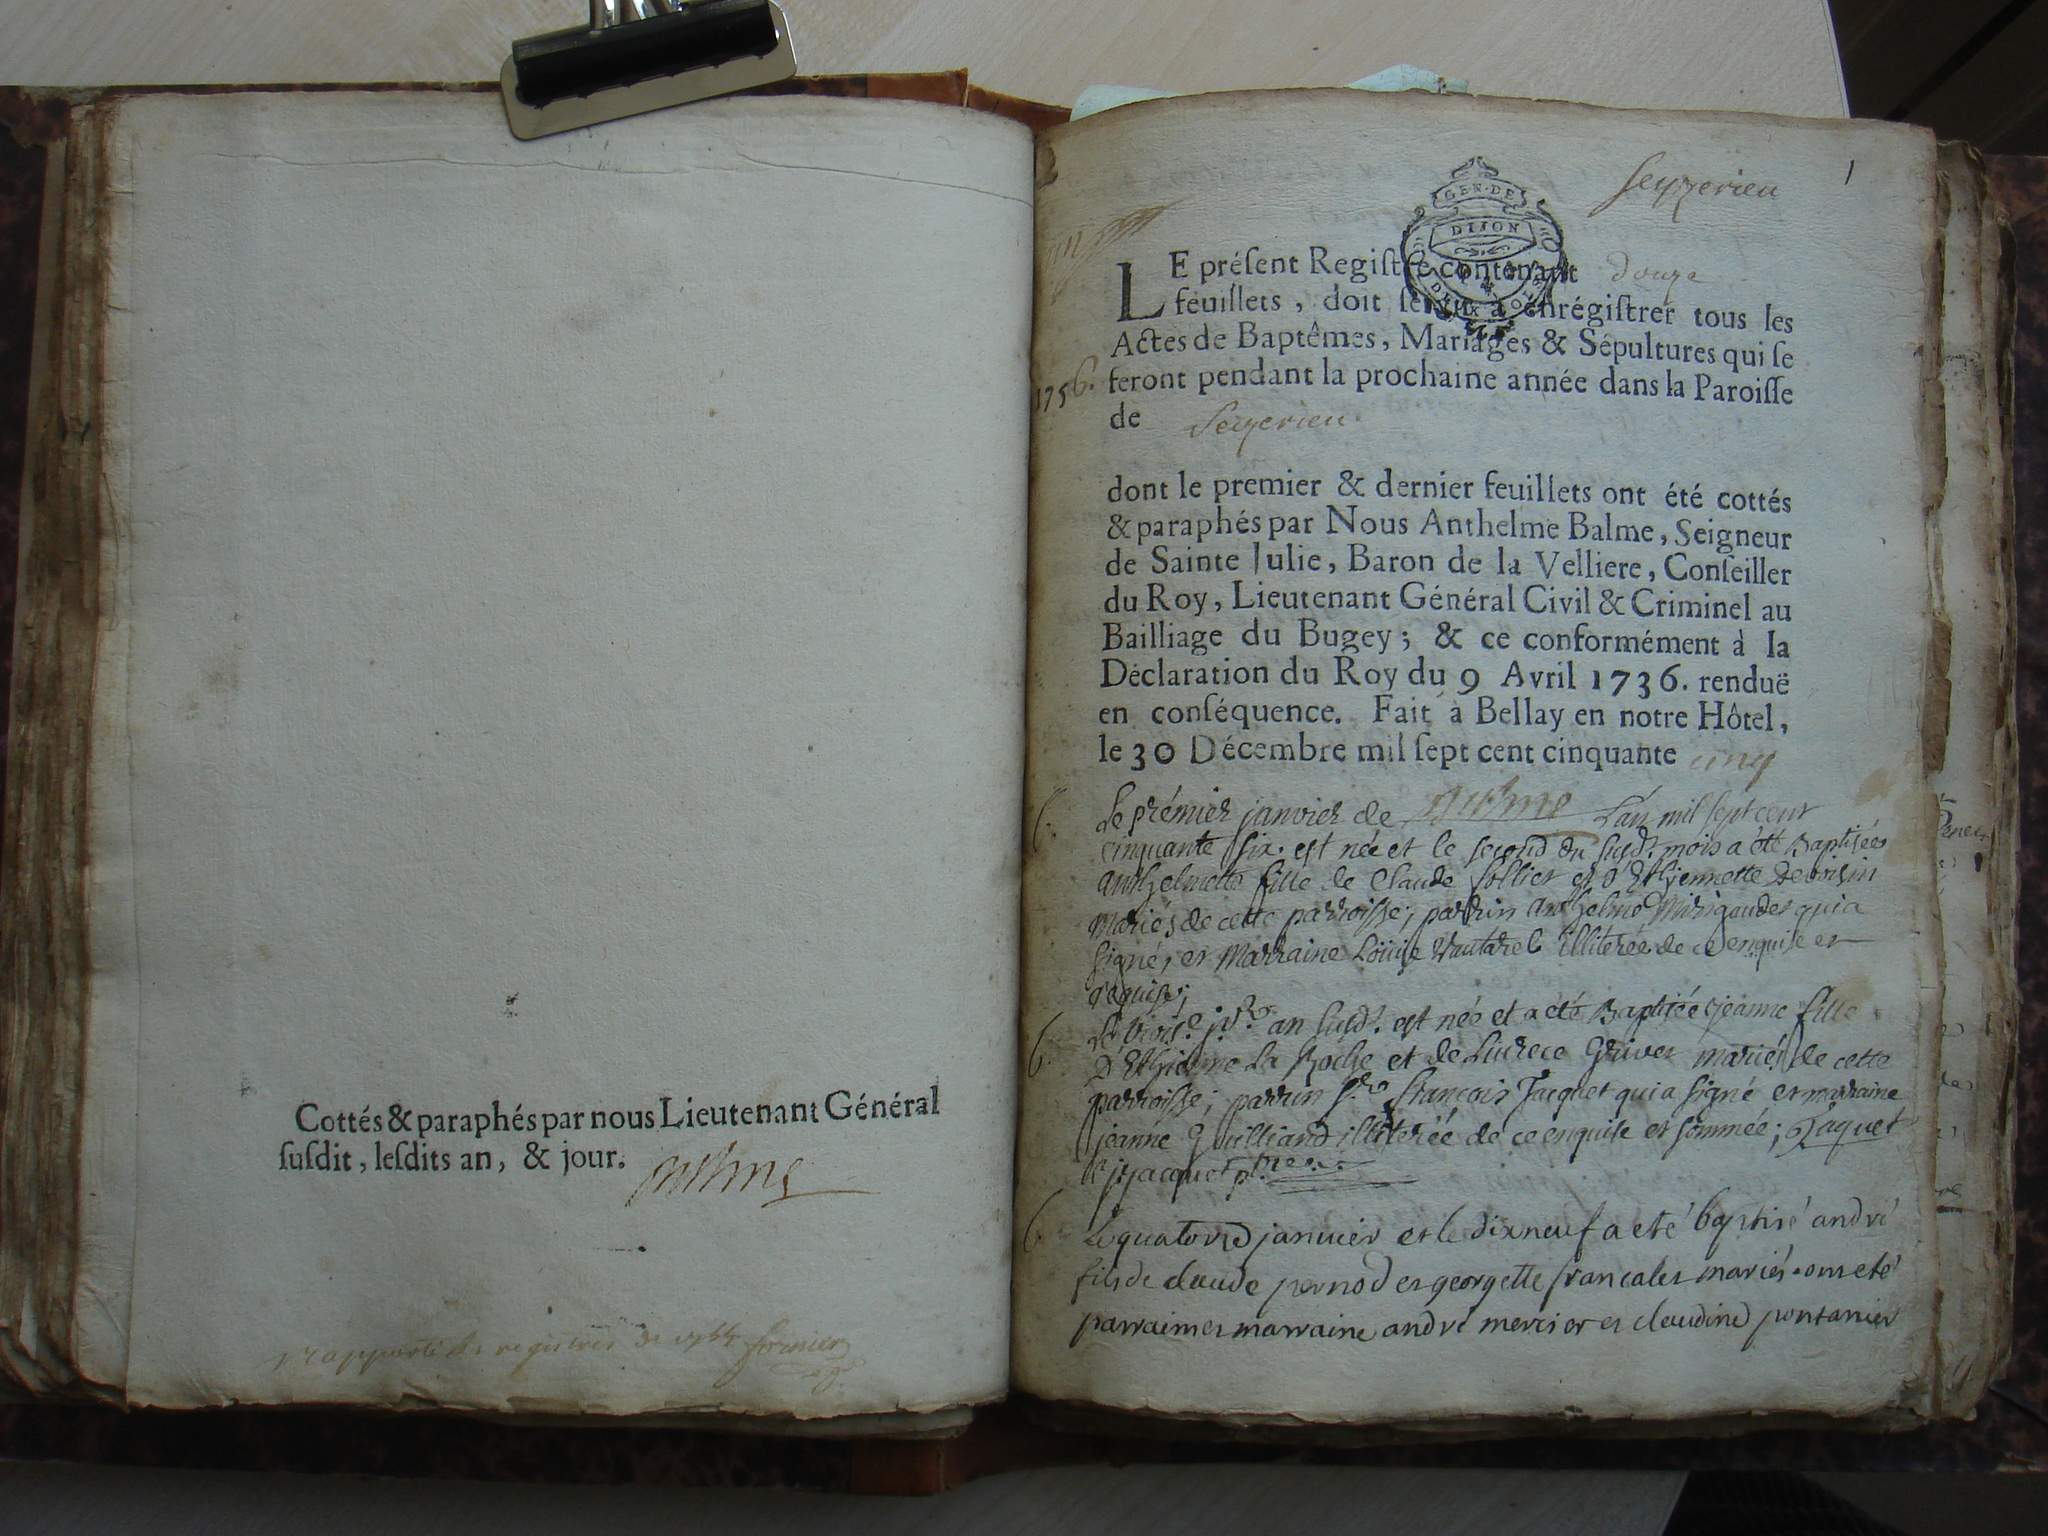 Cottés & paraphés par nous Lieutenant Général
ſuſdit, leſdits an, & jour.
registres de
1
Seyzerieu
GEN · DE
DIJON
LE préſent Regiſtre contenant douze
feuillets, doit ſervir à enrégiſtrer tous les
Actes de Baptêmes, Mariages & Sépultures qui ſe
1756. feront pendant la prochaine année dans la Paroiſſe
de Seyzerieu
dont le premier & dernier feuillets ont été cottés
& paraphés par Nous Anthelme Balme, Seigneur
de Sainte Julie, Baron de la Velliere, Conſeiller
du Roy, Lieutenant Général Civil & Criminel au
Bailliage du Bugey; & ce conformément à la
Déclaration du Roy du 9 Avril 1736. renduë
en conſéquence. Fait à Bellay en notre Hôtel,
le 30 Décembre mil ſept cent cinquante cinq
Le prémier janvier de L'an mil sept cent
cinquante six. est née et le second du susd. mois a été Baptisée
Anthelmette fille de Claude Sollier et d'Ethjennette Devoisin
Mariés de cette parroisse; parrin Anthelme qui a
signé, et Marraine Loüise illiterée de ce enquise et
requise;
b. an susd. est née et a été Baptisée jeanne fille
D'Ethienne La Roche et de Lucrece Grivet mariés de cette
parroisse; parrin François Jacquet qui a signé et marraine
jeanne Guilliand illiterée de ce enquise et sommée; Jaquet
jacquet
b. Le quatorze janvier et le dixneuf a eté baptisé andré
fils de claude pernod et georgette francalet mariés. ont eté
parrain et marraine andré mercier et claudine pontanier